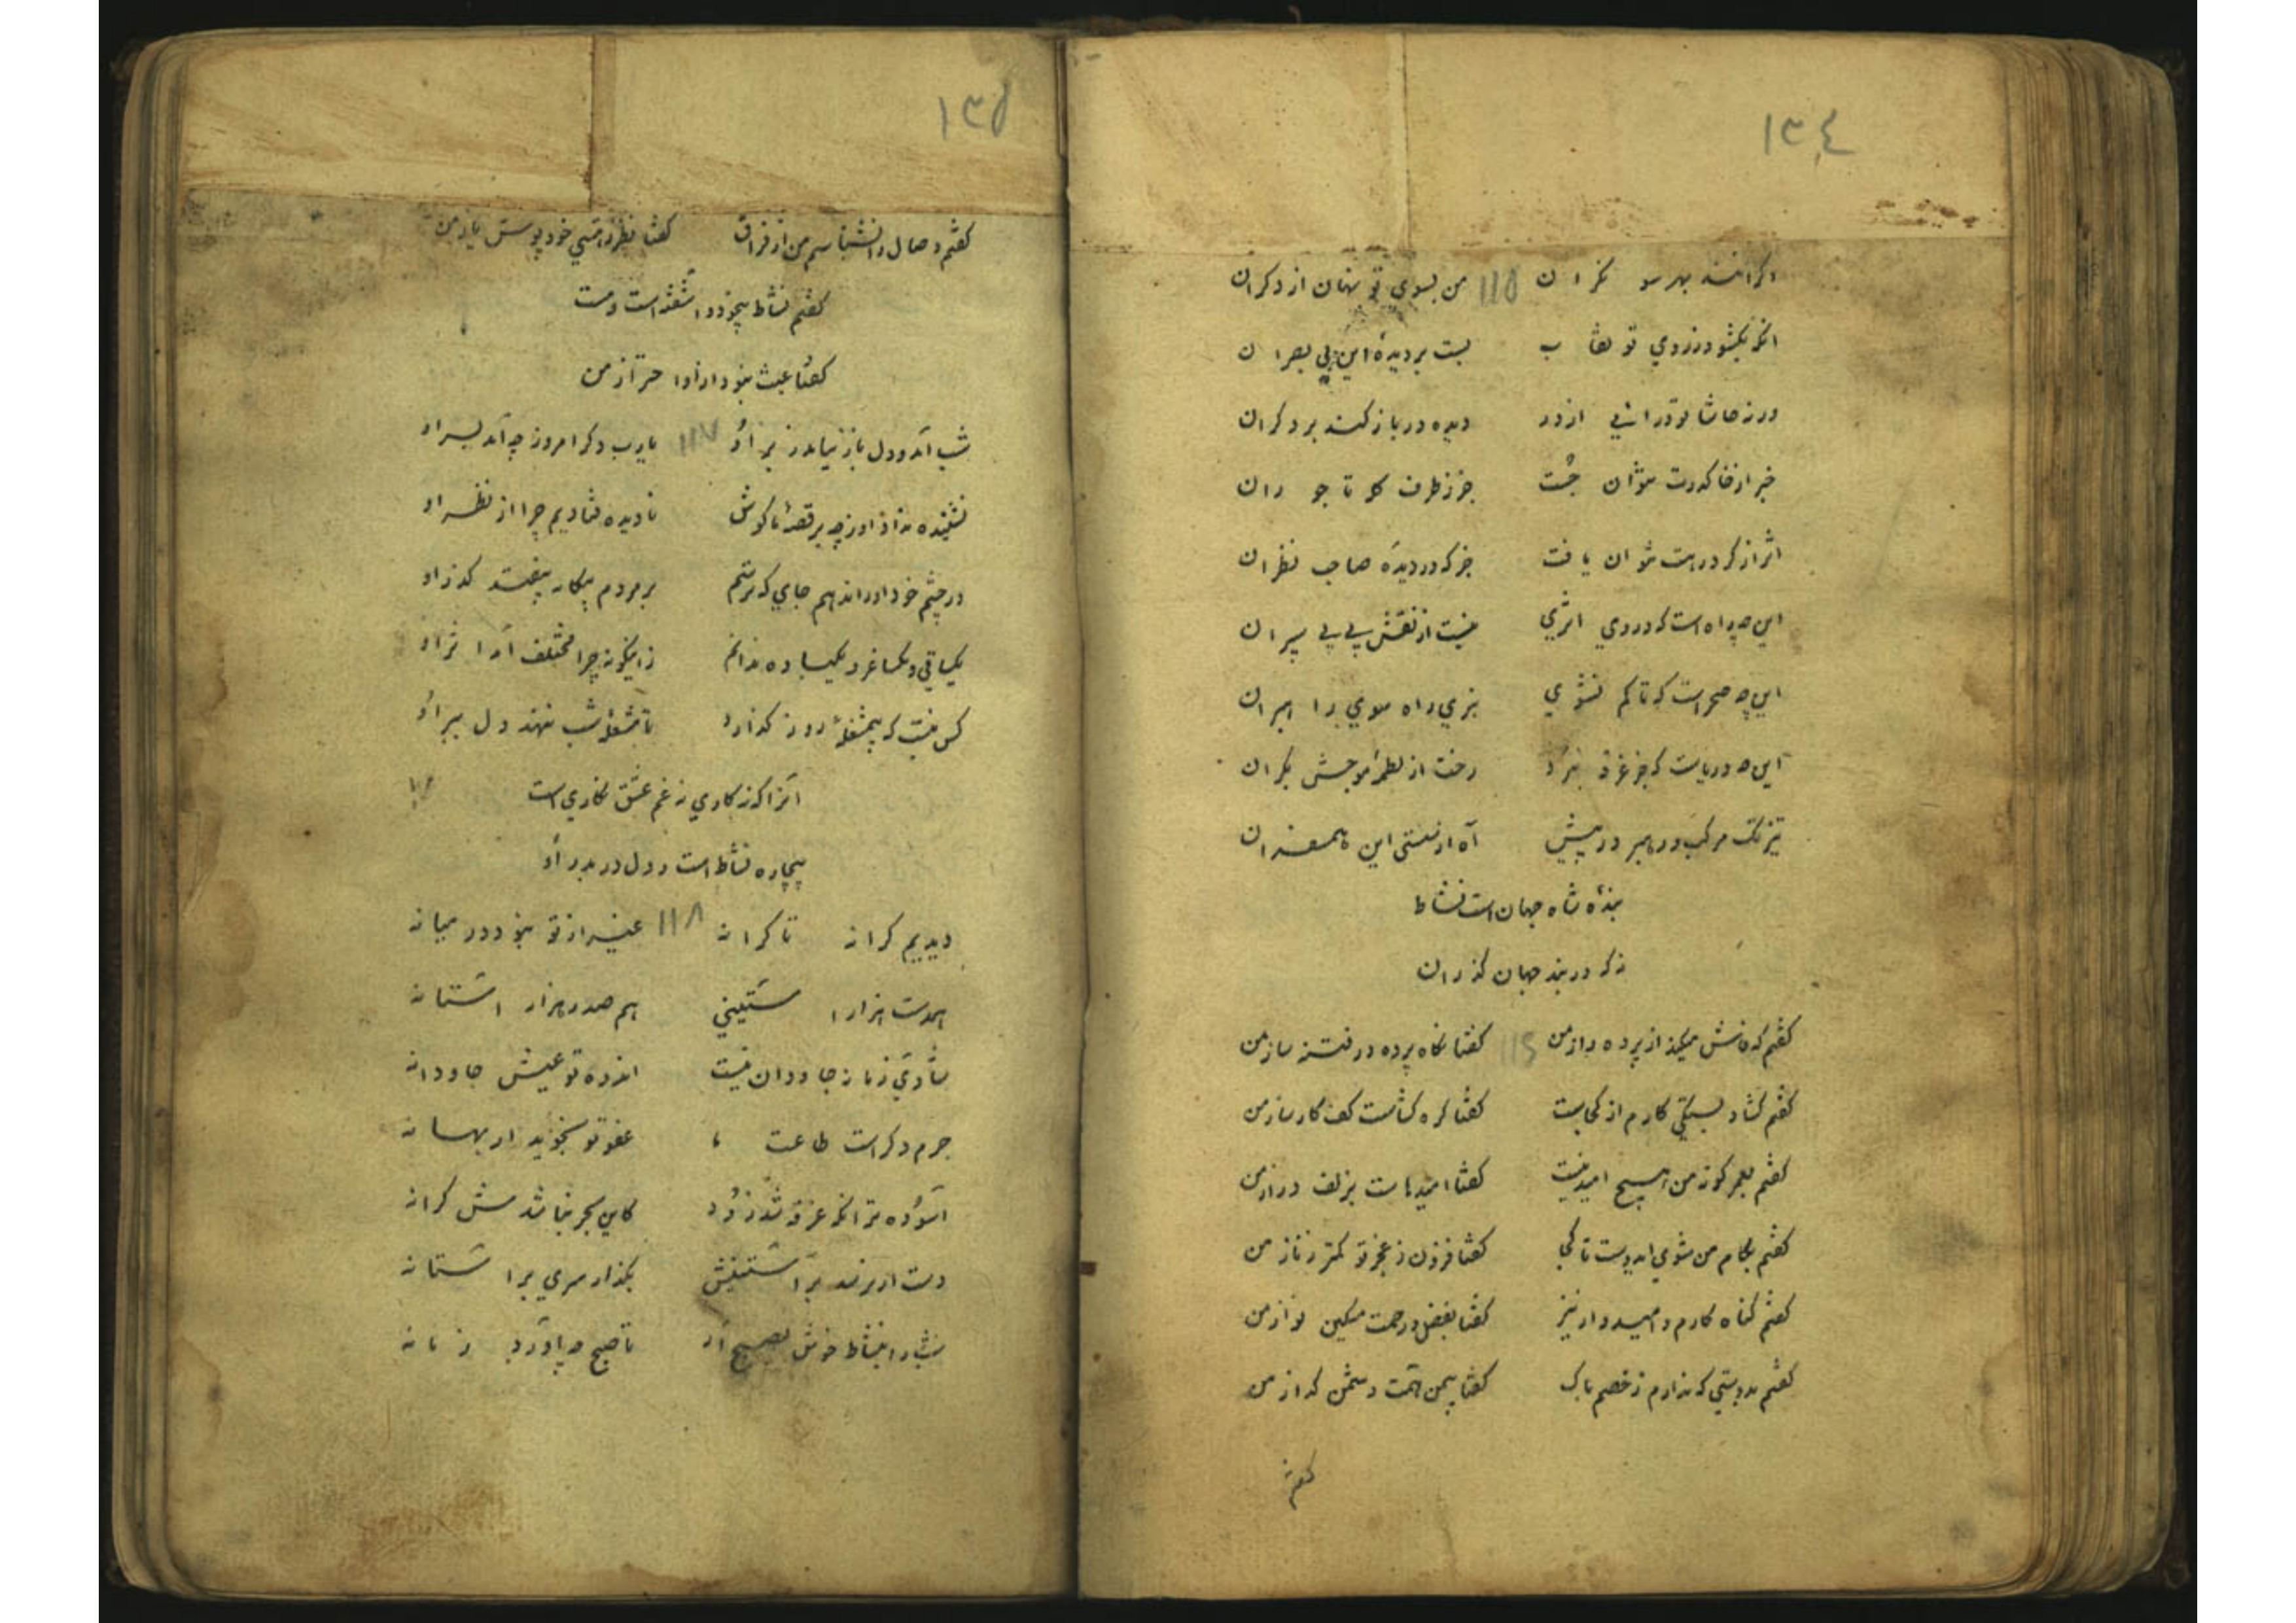 ١٣٤
اکرانند بهر سو نکران ١١٥ من بسوی تو نهان از دکران
انکه بکشود ز روی تو نقاب بست بر دیدهٔ این بی بصران
ورنه حاشا تو درائی از در دیده در باز کند بر دکران
خبر از خاک درت نتوان جست جز ز طرف کله تاجوران
اثر از کرد رهت نتوان یافت جز که در دیدهٔ صاحب نظران
این چه راه است که در وی اثری نیست از نقش پی پی سپران
این چه صحراست که تا کم نشوی نبری راه سوی راهبران
این چه دریاست که جز غرقه نبرد رخت از لطمهٔ موجش بکران
تیز تک مرکب و رهبر در پیش آه از سستی این همسفران
بندهٔ شاه جهان است نشاط
نه که در بند جهان کذران
کفتم که فاش میکند از پرده راز من ١١٦ کفتا نکاه پرده در فتنه ساز من
کفتم کشاد بستکی کارم از کجاست کفتا کره کشاست کف کارساز من
کفتم بعمر کوته من هیچ امید نیست کفتا امیدهاست بزلف دراز من
کفتم بکام من شوی ایدوست تا کجا کفتا فزون ز عجز تو کمتر ز ناز من
کفتم کناه کارم و امیدوار نیز کفتا بفضل و رحمت مسکین نواز من
کفتم بدوستی که ندارم ز خصم باک کفتا بیمن همت دشمن کداز من
کفتم
١٣٥
کفتم وصال را نشناسم من از فراق کفتا نظر ز هستی خود پوش یا ز من
کفتم نشاط بیخود و آشفته است و مست
کفتا عبث نبود از او احتراز من
شب آمد و دل باز نیامد ز بر او ١١٧ یارب دکر امروز چه آمد بسر او
نشنیده نداد او ز چه بر قصهٔ ما کوش نادیده فتادیم چرا از نظر او
در چشم خود او را ندهم جای که ترسم بر مردم بیکانه بیفتد کذر او
یکساقی و یکساغر و یکباده ندانم زاینکونه چرا مختلف آمد اثر او
کس نیست که بیمشغلهٔ روز کذارد تا مشغله شب ننهند دل ببر او
آنرا که نه کاری ز غم عشق نکاری است
بیچاره نشاط است و دل در بدر او
دیدیم کرانه تا کرانه ١١٨ غیر از تو نبود در میانه
همدست هزار آستینی هم صدر هزار آستانه
شادی زمانه جاودان نیست اندوه تو عیش جاودانه
جرم دکر است طاعت ما عفو تو نجوید ار بهانه
آسوده تر انکه غرقه شد زود کاین بحر نباشدش کرانه
دست ار نرسد بر آستینش بکذار سری بر آستانه
شب را بنشاط خوش بصبح آر تا صبح چه آورد زمانه